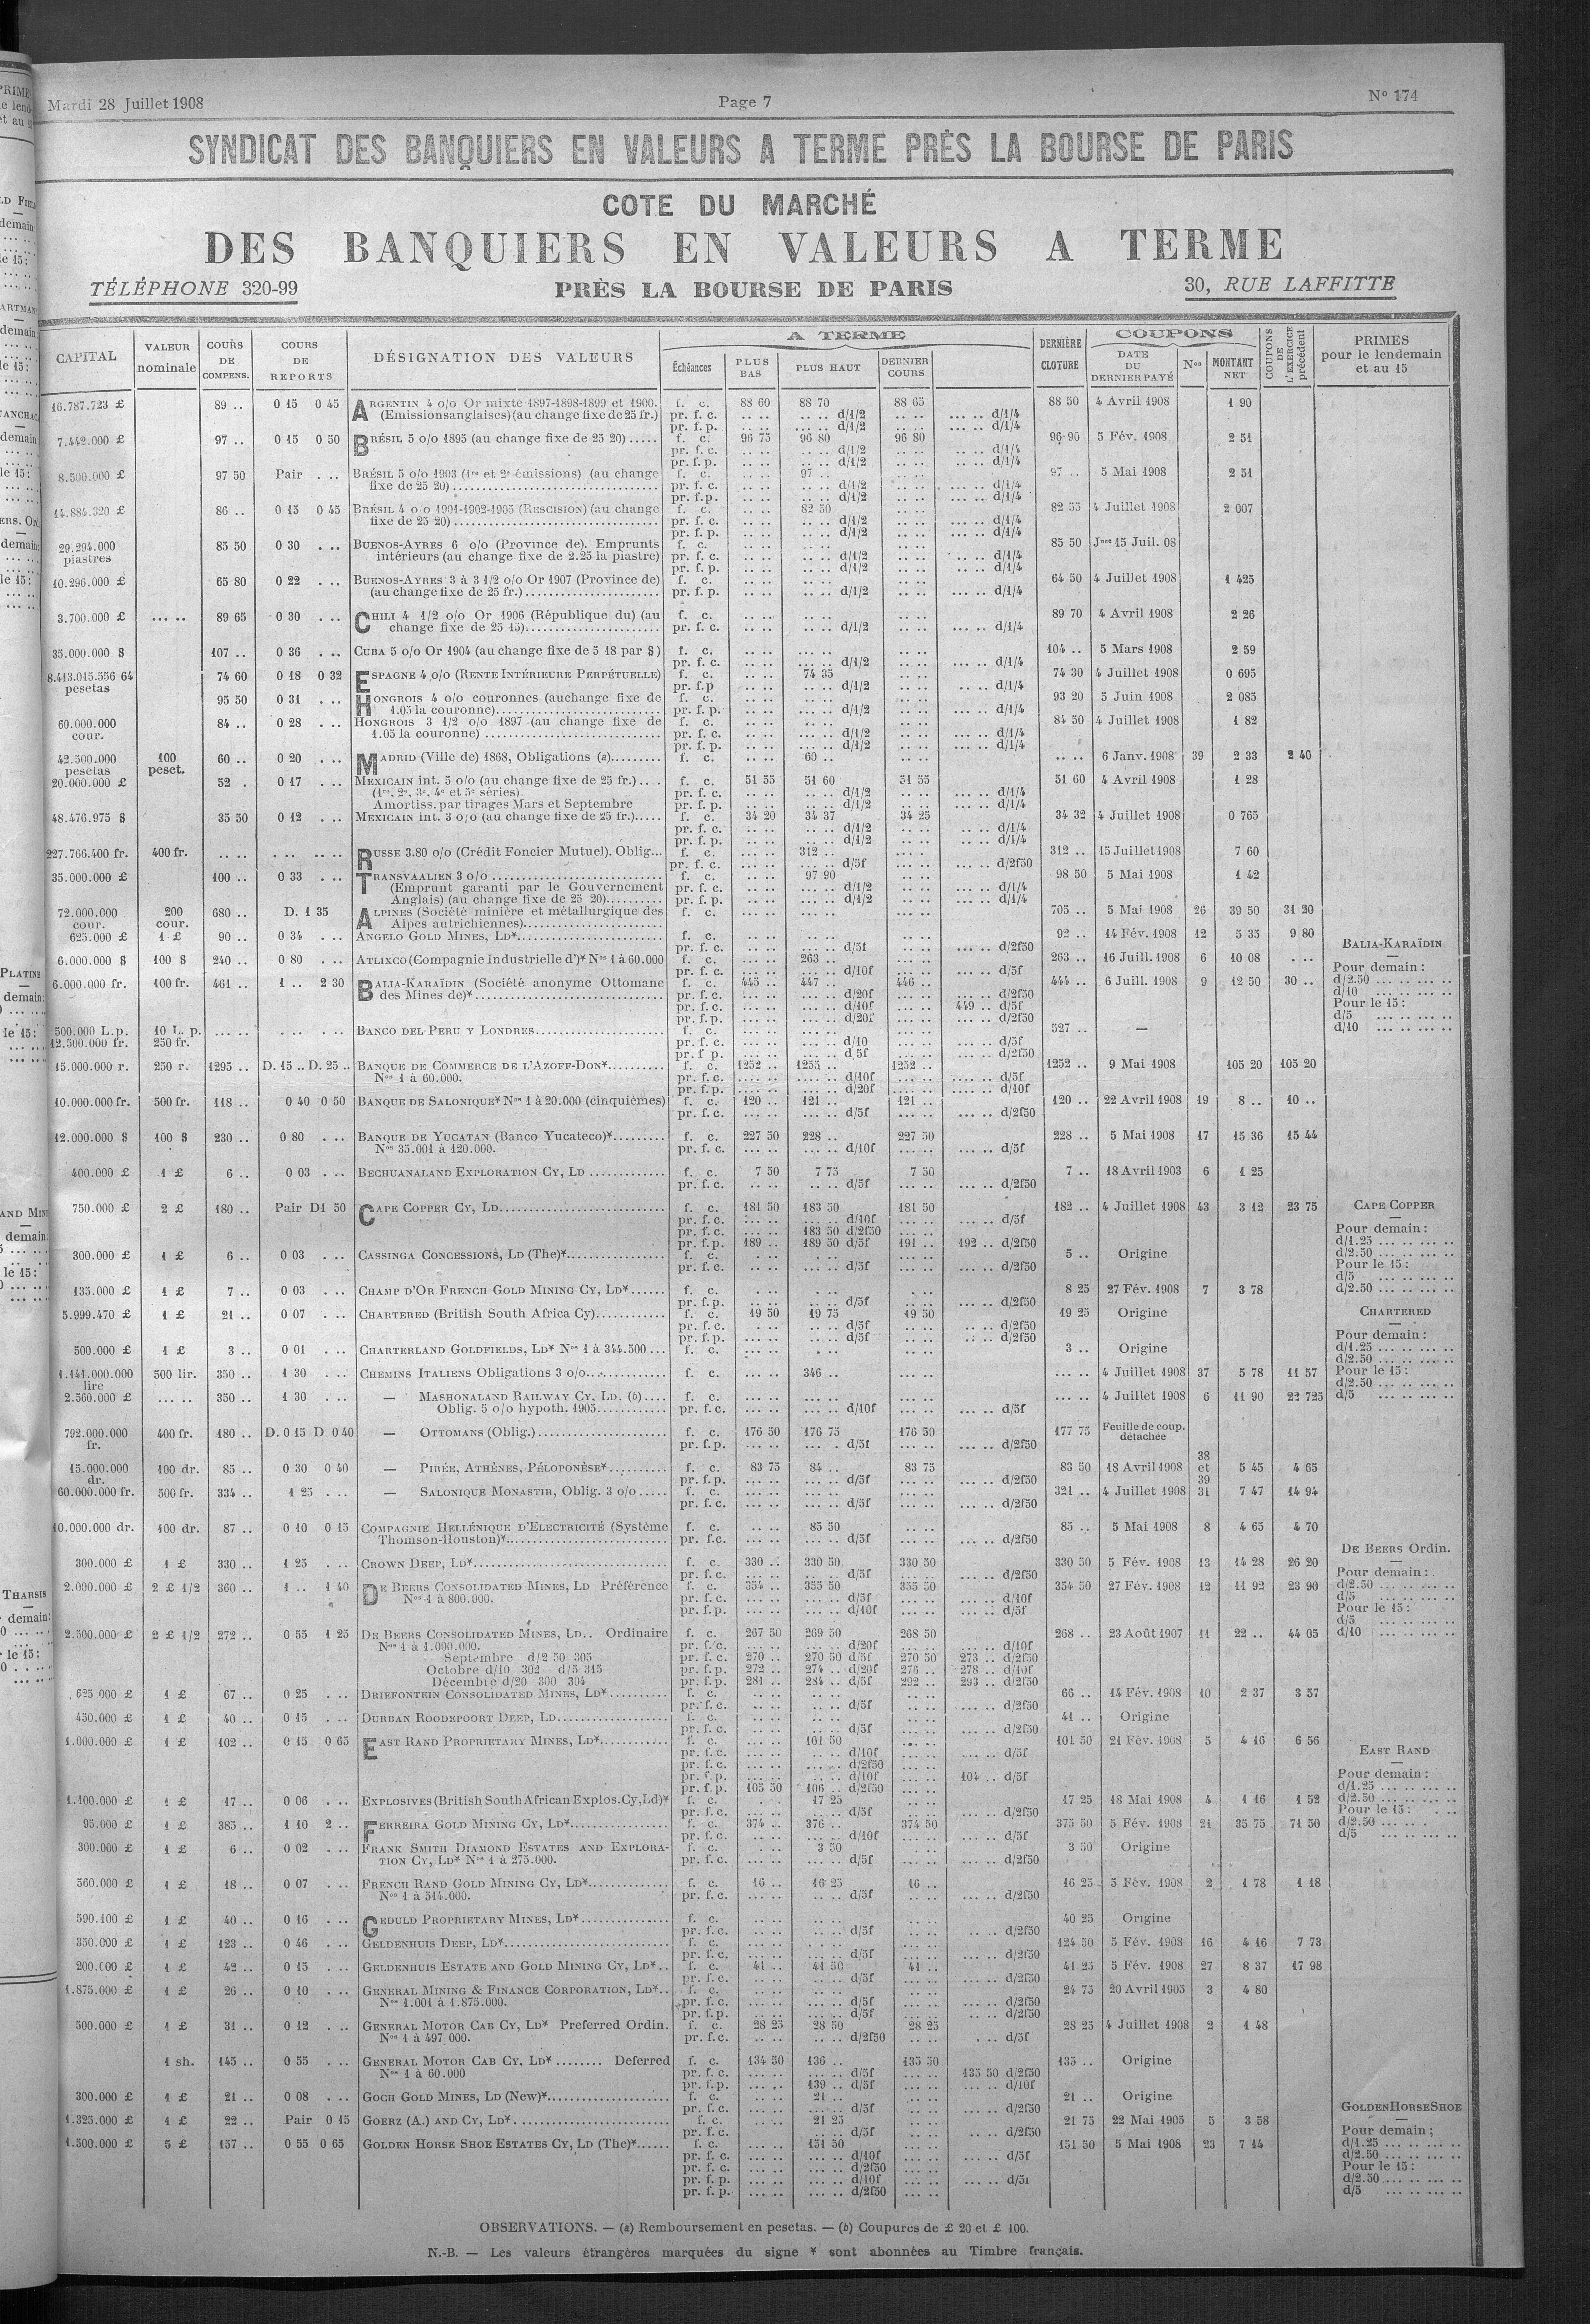 Mardi 28 Juillet 1908 Page 7 Nº 174
SYNDICAT DES BANQUIERS EN VALEURS A TERME PRÈS LA BOURSE DE PARIS
COTE DU MARCHÉ
DES BANQUIERS EN VALEURS A TERME
TÉLÉPHONE 320-99 PRÈS LA BOURSE DE PARIS 30, RUE LAFFITTE
CAPITAL VALEUR nominale COURS DE COMPENS. COURS DE REPORTS DÉSIGNATION DES VALEURS A TERME Échéances PLUS BAS PLUS HAUT DERNIER COURS DERNIÈRE CLOTURE COUPONS DATE DU DERNIER PAYÉ Nos MONTANT NET COUPONS DE L'EXERCICE précédent PRIMES pour le lendemain et au 15
16.787.723 £ 89 .. 0 15 0 45 ARGENTIN 4 o/o Or mixte 1897-1898-1899 et 1900. f. c. 88 60 88 70 88 65 88 50 4 Avril 1908 1 90
(Emissions anglaises) (au change fixe de 25 fr.) pr. f. c. d/1/2 d/1/4
pr. f. p. d/1/2 d/1/4
7.442.000 £ 97 .. 0 15 0 50 BRÉSIL 5 o/o 1895 (au change fixe de 25 20) f. c. 96 75 96 80 96 80 96 90 5 Fév. 1908 2 51
pr. f. c. d/1/2 d/1/4
pr. f. p. d/1/2 d/1/4
8.500.000 £ 97 50 Pair BRÉSIL 5 o/o 1903 (1re et 2e émissions) (au change f. c. 97 .. 97 .. 5 Mai 1908 2 51
fixe de 25 20) pr. f. c. d/1/2 d/1/4
pr. f. p. d/1/2 d/1/4
14.884.320 £ 86 .. 0 15 0 45 BRÉSIL 4 o/o 1901-1902-1905 (RESCISION) (au change f. c. 82 50 82 55 4 Juillet 1908 2 007
fixe de 25 20) pr. f. c. d/1/2 d/1/4
pr. f. p. d/1/2 d/1/4
29.294.000 piastres 85 50 0 30 BUENOS-AYRES 6 o/o (Province de). Emprunts f. c. 85 50 Jce 15 Juil. 08
intérieurs (au change fixe de 2.25 la piastre) pr. f. c. d/1/2 d/1/4
pr. f. p. d/1/2 d/1/4
10.296.000 £ 65 80 0 22 BUENOS-AYRES 3 à 3 1/2 o/o Or 1907 (Province de) f. c. 64 50 4 Juillet 1908 1 425
(au change fixe de 25 fr.) pr. f. p. d/1/2 d/1/4
3.700.000 £ 89 65 0 30 CHILI 4 1/2 o/o Or 1906 (République du) (au f. c. 89 70 4 Avril 1908 2 26
change fixe de 25 15) pr. f. c. d/1/2 d/1/4
35.000.000 $ 107 .. 0 36 CUBA 5 o/o Or 1904 (au change fixe de 5 18 par $) f. c. 104 .. 5 Mars 1908 2 59
pr. f. c. d/1/2 d/1/4
8.413.015.556 64 pesetas 74 60 0 18 0 32 ESPAGNE 4 o/o (RENTE INTÉRIEURE PERPÉTUELLE) f. c. 74 35 74 30 4 Juillet 1908 0 695
pr. f.p d/1/2 d/1/4
95 50 0 31 HONGROIS 4 o/o couronnes (au change fixe de f. c. 93 20 5 Juin 1908 2 085
1.05 la couronne) pr. f. p. d/1/2 d/1/4
60.000.000 cour. 84 .. 0 28 HONGROIS 3 1/2 o/o 1897 (au change fixe de f. c. 84 50 4 Juillet 1908 1 82
1.05 la couronne) pr. f. c. d/1/2 d/1/4
pr. f. p. d/1/2 d/1/4
42.500.000 pesetas 100 peset. 60 .. 0 20 MADRID (Ville de) 1868, Obligations (a) f. c. 60 .. 6 Janv. 1908 39 2 33 2 40
20.000.000 £ 52 . 0 17 MEXICAIN int. 5 o/o (au change fixe de 25 fr.) f. c. 51 55 51 60 51 55 51 60 4 Avril 1908 1 28
(1re, 2e, 3e, 4e et 5e séries) pr. f. c. d/1/2 d/1/4
Amortiss. par tirages Mars et Septembre pr. f. p. d/1/2 d/1/4
48.476.975 $ 35 50 0 12 MEXICAIN int. 3 o/o (au change fixe de 25 fr.) f. c. 34 20 34 37 34 25 34 32 4 Juillet 1908 0 765
pr. f. c. d/1/2 d/1/4
pr. f. p. d/1/2 d/1/4
227.766.400 fr. 400 fr. RUSSE 3.80 o/o (Crédit Foncier Mutuel). Oblig... f. c. 312 .. 312 .. 15 Juillet 1908 7 60
pr. f. c. d/5f d/2f50
35.000.000 £ 100 .. 0 33 TRANSVAALIEN 3 o/o f. c. 97 90 98 50 5 Mai 1908 1 42
(Emprunt garanti par le Gouvernement pr. f. c. d/1/2 d/1/4
Anglais) (au change fixe de 25 20) pr. f. p. d/1/2 d/1/4
72.000.000 cour. 200 cour. 680 .. D. 1 35 ALPINES (Société minière et métallurgique des f. c. 705 .. 5 Mai 1908 26 39 50 31 20
Alpes autrichiennes)
625.000 £ 1 £ 90 .. 0 34 ANGELO GOLD MINES, LD* f. c. 92 .. 14 Fév. 1908 12 5 35 9 80
pr. f. c. d/5f d/2f50
6.000.000 $ 100 $ 240 .. 0 80 ATLIXCO (Compagnie Industrielle d')* Nos 1 à 60.000 f. c. 263 .. 263 .. 16 Juill. 1908 6 10 08
pr. f. c. d/10f d/5f
6.000.000 fr. 100 fr. 461 .. 1 .. 2 30 BALIA-KARAÏDIN (Société anonyme Ottomane f. c. 445 .. 447 .. 446 .. 444 .. 6 Juill. 1908 9 12 50 30 ..
des Mines de)* pr. f. c. d/20f d/2f50
pr. f. c. d/10f 449 .. d/5f
pr. f. p. d/20f d/2f50
BALIA-KARAÏDIN
Pour demain :
d/2.50
d/10
Pour le 15 :
d/5
d/10
500.000 L.p. 10 L. p. BANCO DEL PERU Y LONDRES f. c. 527 .. —
12.500.000 fr. 250 fr. pr. f. c. d/10 d/5f
pr. f p. d/5f d/2f50
15.000.000 r. 250 r. 1295 .. D. 15 .. D. 25 .. BANQUE DE COMMERCE DE L'AZOFF-DON* f. c. 1252 .. 1255 .. 1252 .. 1252 .. 9 Mai 1908 105 20 105 20
Nos 1 à 60.000. pr. f.c. d/10f d/5f
pr. f.p. d/20f d/10f
10.000.000 fr. 500 fr. 118 .. 0 40 0 50 BANQUE DE SALONIQUE* Nos 1 à 20.000 (cinquièmes) f. c. 120 .. 121 .. 121 .. 120 .. 22 Avril 1908 19 8 .. 10 ..
pr. f.c. d/5f d/2f50
12.000.000 $ 100 $ 230 .. 0 80 BANQUE DE YUCATAN (Banco Yucateco)* f. c. 227 50 228 .. 227 50 228 .. 5 Mai 1908 17 15 36 15 44
Nos 35.001 à 120.000. pr. f. c. d/10f d/5f
400.000 £ 1 £ 6 .. 0 03 BECHUANALAND EXPLORATION CY, LD f. c. 7 50 7 75 7 50 7 .. 18 Avril 1903 6 1 25
pr. f. c. d/5f d/2f50
750.000 £ 2 £ 180 .. Pair D1 50 CAPE COPPER CY, LD f. c. 181 50 183 50 181 50 182 .. 4 Juillet 1908 43 3 12 23 75
pr. f. c. d/10f d/5f
pr. f. c. 183 50 d/2f50
pr. f. p. 189 .. 189 50 d/5f 191 .. 192 .. d/2f50
CAPE COPPER
Pour demain :
d/1.25
d/2.50
Pour le 15 :
d/5
d/2.50
300.000 £ 1 £ 6 .. 0 03 CASSINGA CONCESSIONS, LD (The)* f. c. 5 .. Origine
pr. f. c. d/5f d/2f50
135.000 £ 1 £ 7 .. 0 03 CHAMP D'OR FRENCH GOLD MINING CY, LD* f. c. 8 25 27 Fév. 1908 7 3 78
pr. f. p. d/5f d/2f50
5.999.470 £ 1 £ 21 .. 0 07 CHARTERED (British South Africa Cy) f. c. 19 50 19 75 19 50 19 25 Origine
pr. f. c. d/5f d/2f50
pr. f. p. d/5f d/2f50
CHARTERED
Pour demain :
d/1.25
d/2.50
Pour le 15 :
d/2.50
d/5
500.000 £ 1 £ 3 .. 0 01 CHARTERLAND GOLDFIELDS, LD* Nos 1 à 344.500 f. c. 3 .. Origine
1.141.000.000 lire 500 lir. 350 .. 1 30 CHEMINS ITALIENS Obligations 3 o/o f. c. 346 .. 4 Juillet 1908 37 5 78 11 57
2.560.000 £ 350 .. 1 30 — MASHONALAND RAILWAY CY, LD. (b) f. c. 4 Juillet 1908 6 11 90 22 725
Oblig. 5 o/o hypoth. 1905 pr. f. c. d/10f d/5f
792.000.000 fr. 400 fr. 180 .. D. 0 15 D 0 40 — OTTOMANS (Oblig.) f. c. 176 50 176 75 176 50 177 75 Feuille de coup. détachée
pr. f.p. d/5f d/2f50
15.000.000 dr. 100 dr. 85 .. 0 30 0 40 — PIRÉE, ATHÈNES, PÉLOPONÈSE* f. c. 83 75 84 .. 83 75 83 50 18 Avril 1908 38 et 39 5 45 4 65
pr. f.p. d/5f d/2f50
60.000.000 fr. 500 fr. 334 .. 1 25 — SALONIQUE MONASTIR, Oblig. 3 o/o f. c. 321 .. 4 Juillet 1908 31 7 47 14 94
pr. f.c. d/5f d/2f50
10.000.000 dr. 100 dr. 87 .. 0 10 0 15 COMPAGNIE HELLÉNIQUE D'ELECTRICITÉ (Système f. c. 85 50 85 .. 5 Mai 1908 8 4 65 4 70
Thomson-Houston)* pr. f.c. d/5f d/2f50
300.000 £ 1 £ 330 .. 1 25 CROWN DEEP, LD* f. c. 330 .. 330 50 330 50 330 50 5 Fév. 1908 13 14 28 26 20
pr. f. c. d/5f d/2f50
2.000.000 £ 2 £ 1/2 360 .. 1 .. 1 40 DE BEERS CONSOLIDATED MINES, LD Préférence f. c. 354 .. 355 50 355 50 354 50 27 Fév. 1908 12 11 92 23 90
Nos 1 à 800.000. pr. f. c. d/5f d/10f
pr. f. p. d/10f d/5f
DE BEERS Ordin.
Pour demain :
d/2.50
d/5
Pour le 15 :
d/5
d/10
2.500.000 £ 2 £ 1/2 272 .. 0 55 1 25 DE BEERS CONSOLIDATED MINES, LD.. Ordinaire f. c. 267 50 269 50 268 50 268 .. 23 Août 1907 11 22 .. 44 05
Nos 1 à 1.000.000. pr. f. c. d/20f d/10f
Septembre d/2 50 305 pr. f. c. 270 .. 270 50 d/5f 270 50 273 .. d/2f50
Octobre d/10 302 d/5 315 pr. f. p. 272 .. 274 .. d/20f 276 .. 278 .. d/10f
Décembre d/20 300 304 pr. f. p. 281 .. 284 .. d/5f 292 .. 293 .. d/2f50
625 000 £ 1 £ 67 .. 0 25 DRIEFONTEIN CONSOLIDATED MINES, LD* f. c. 66 .. 14 Fév. 1908 10 2 37 3 57
pr. f. c. d/5f d/2f50
450.000 £ 1 £ 40 .. 0 15 DURBAN ROODEPOORT DEEP, LD f. c. 41 .. Origine
pr. f. c. d/5f d/2f50
1.000.000 £ 1 £ 102 .. 0 15 0 65 EAST RAND PROPRIETARY MINES, LD* f. c. 101 50 101 50 21 Fév. 1908 5 4 16 6 56
pr. f. c. d/10f d/5f
pr. f. c. d/2f50
pr. f. p. d/10f 104 .. d/5f
pr. f. p. 105 50 106 .. d/2f50
EAST RAND
Pour demain :
d/1.25
d/2.50
Pour le 15 :
d/2.50
d/5
1.100.000 £ 1 £ 17 .. 0 06 EXPLOSIVES (British South African Explos. Cy, Ld)* f. c. 17 25 17 25 18 Mai 1908 4 1 16 1 52
pr. f. c. d/5f d/2f50
95.000 £ 1 £ 385 .. 1 10 2 .. FERREIRA GOLD MINING CY, LD* f. c. 374 .. 376 .. 374 50 375 50 5 Fév. 1908 21 35 75 71 50
pr. f. c. d/10f d/5f
300.000 £ 1 £ 6 .. 0 02 FRANK SMITH DIAMOND ESTATES AND EXPLORA- f. c. 3 50 3 50 Origine
TION CY, LD* Nos 1 à 275.000. pr. f. c. d/5f d/2f50
560.000 £ 1 £ 18 .. 0 07 FRENCH RAND GOLD MINING CY, LD* f. c. 16 .. 16 25 16 .. 16 25 5 Fév. 1908 2 1 78 1 18
Nos 1 à 514.000. pr. f. c. d/5f d/2f50
590.100 £ 1 £ 40 .. 0 16 GEDULD PROPRIETARY MINES, LD* f. c. 40 25 Origine
pr. f. c. d/5f d/2f50
350.000 £ 1 £ 123 .. 0 46 GELDENHUIS DEEP, LD* f. c. 124 50 5 Fév. 1908 16 4 16 7 73
pr. f. c. d/5f d/2f50
200.000 £ 1 £ 42 .. 0 15 GELDENHUIS ESTATE AND GOLD MINING CY, LD* f. c. 41 .. 41 50 41 .. 41 25 5 Fév. 1908 27 8 37 17 98
pr. f. c. d/5f d/2f50
1.875.000 £ 1 £ 26 .. 0 10 GENERAL MINING & FINANCE CORPORATION, LD* f. c. 24 75 20 Avril 1905 3 4 80
Nos 1.001 à 1.875.000. pr. f. c. d/5f d/2f50
pr. f.p. d/5f d/2f50
500.000 £ 1 £ 31 .. 0 12 GENERAL MOTOR CAB CY, LD* Preferred Ordin. f. c. 28 25 28 50 28 25 28 25 4 Juillet 1908 2 1 48
Nos 1 à 497 000. pr. f.c. d/2f50 d/5f
1 sh. 145 .. 0 55 GENERAL MOTOR CAB CY, LD* ........ Deferred f. c. 134 50 136 .. 135 50 135 .. Origine
Nos 1 à 60.000 pr. f. c. d/5f 135 50 d/2f50
pr. f.p. 139 .. d/5f d/10f
300.000 £ 1 £ 21 .. 0 08 GOCH GOLD MINES, LD (New)* f. c. 21 .. 21 .. Origine
pr. f.c. d/5f d/2f50
1.325.000 £ 1 £ 22 .. Pair 0 15 GOERZ (A.) AND CY, LD* f. c. 21 25 21 75 22 Mai 1905 5 3 58
pr. f.c. d/5f d/2f50
1.500.000 £ 5 £ 157 .. 0 55 0 65 GOLDEN HORSE SHOE ESTATES CY, LD (The)* f. c. 151 50 151 50 5 Mai 1908 23 7 14
pr. f. c. d/10f d/5f
pr. f. c. d/2f50
pr. f. p. d/10f d/5f
pr. f. p. d/2f50
GOLDEN HORSE SHOE
Pour demain ;
d/1.25
d/2.50
Pour le 15 :
d/2.50
d/5
OBSERVATIONS. — (a) Remboursement en pesetas. — (b) Coupures de £ 20 et £ 100.
N.-B. — Les valeurs étrangères marquées du signe * sont abonnées au Timbre français.